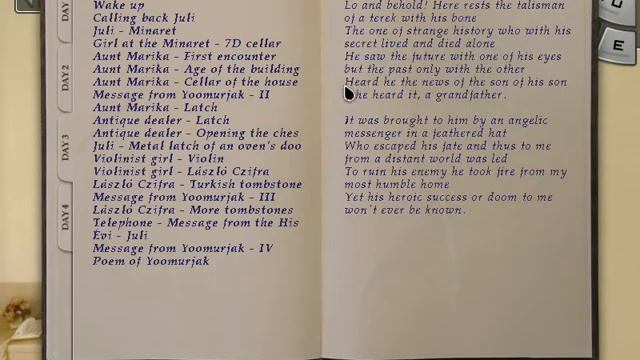 DAY
Wake up
Calling back Juli
Juli - Minaret
Girl at the Minaret - 7D cellar
DAY2
Aunt Marika - First encounter
Aunt Marika - Age of the building
Aunt Marika - Cellar of the house
Message from Yoomurjak - II
Aunt Marika - Latch
Antique dealer - Latch
DAY3
Antique dealer - Opening the ches
Juli - Metal latch of an oven's doo
Violinist girl - Violin
Violinist girl - László Czifra
László Czifra - Turkish tombstone
DAY4
Message from Yoomurjak - III
László Czifra - More tombstones
Telephone - Message from the His
Evi - Juli
Message from Yoomurjak - IV
Poem of Yoomurjak
Lo and behold! Here rests the talisman
of a terek with his bone
The one of strange history who with his
secret lived and died alone
He saw the future with one of his eyes
but the past only with the other
Heard he the news of the son of his son
he heard it, a grandfather.
It was brought to him by an angelic
messenger in a feathered hat
Who escaped his fate and thus to me
from a distant world was led
To ruin his enemy he took fire from my
most humble home
Yet his heroic success or doom to me
won't ever be known.
E